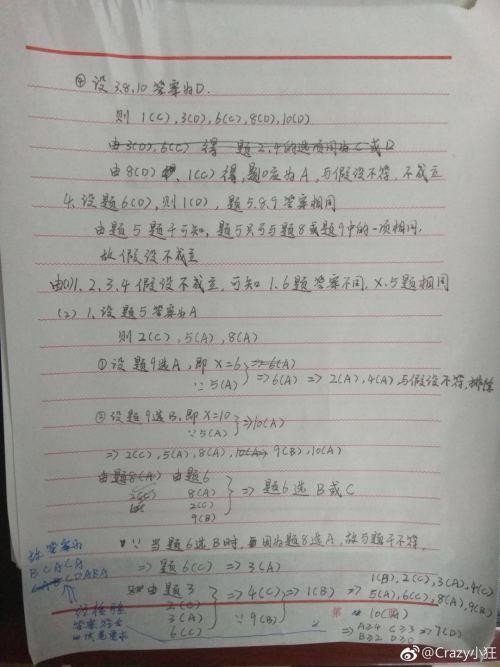 ④设3.8.10答案为D.
则 1(C),3(D),6(C),8(D),10(D)
由3(D),6(C) 得 题2,4的选项同为C或D
由8(D) 1(C)得,题10应为A,与假设不符,不成立
4.设题6(D),则1(D),题5.8.9答案相同
由题5题干可知,题5只可与题8或题9中的一项相同,
故假设不成立
由(1)1,2,3,4假设不成立,可知 1.6题答案不同,X.5题相同
(2) 1.设题5答案为A
则 2(C),5(A),8(A)
①设题9选A,即X=6 ⇒6(A)
∵5(A) ⇒6(A) ⇒ 2(A),4(A)与假设不符,排除
②设题9选B,即X=10
∵5(A) ⇒10(A)
⇒ 2(C),5(A),8(A),10(A) 9(B),10(A)
由题8(A) 由题6
2(C) 8(A)
2(C)
9(B)
⇒ 题6选B或C
∵ 当题6选B时,因为题8选A,故与题干不符,
⇒ 题6(C) ⇒ 3(A)
由题3
2(C)
3(A)
6(C)
⇒4(C)
∵9(B)
⇒1(B) ⇒
1(B),2(C),3(A),4(C)
5(A),6(C),8(A),9(B)
10(A)
⇒ A≥4 C≥3 ⇒7(D)
B≥2 D≥0
故答案为
BCACA
CDABA
经检验
答案符合
一切题意要求
第
@Crazy小狂